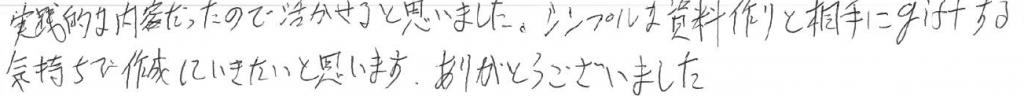 実践的な内容だったので活かせると思いました。シンプルな資料作りと相手にgiftする
気持ちで作成していきたいと思います. ありがとうございました